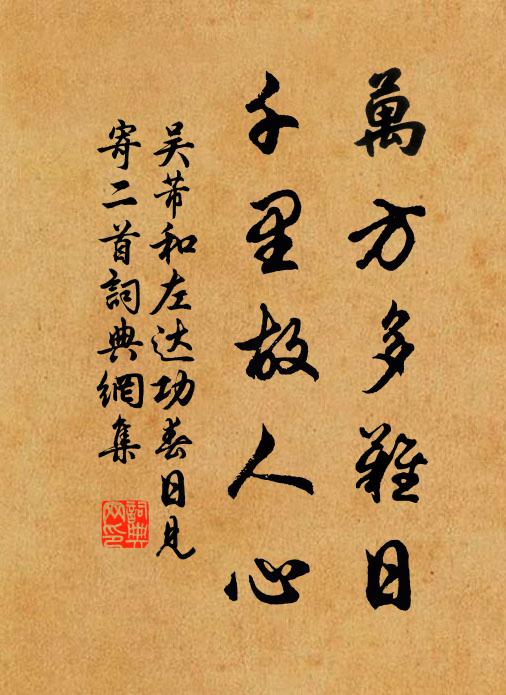 萬方多難日
千里故人心
吴芾和左达功春日見
寄二首詞典網集
詞典
网印